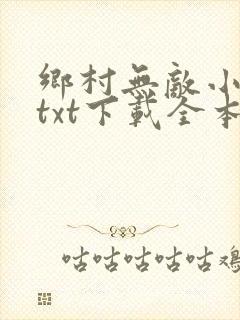 鄉村無敵小
txt下載全本
咕咕咕咕咕雞